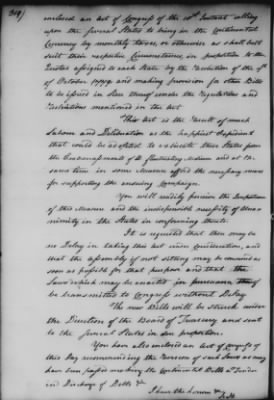 enclosed an Act of Congress of the 18th Instant calling
upon the several States to bring in the Continental
Currency by monthly Taxes, or otherwise as shall best
suit their respective Circumstances, in proportion to the
Quotas assigned to each State by the Resolution of the 7th
of October 1779 and making provision for other Bills
to be issued in Lieu thereof under the Regulations and
Restrictions mentioned in the Act.
This Act is the Result of much
Labour and Deliberation as the happiest Expedient
that could be adopted to extricate these States from
the Embarrassments of a fluctuating Medium and at the
same time in some Measure afford the necessary means
for supporting the ensuing Campaign.
You will readily perceive the Importance
of this Measure and the indispensible necessity of Una-
nimity in the States in conforming thereto.
It is requested that there may be
no Delay in taking this Act under Consideration, and
that the Assembly if not sitting may be convened as
soon as possible for that purpose and that the
Laws which may be enacted in pursuance thereof
be transmitted to Congress without Delay.
The new Bills will be struck under
the Direction of the Board of Treasury and sent
to the several States in due proportion.
You have also enclosed an Act of Congress of
this Day recommending the Revision of such Laws as may
have been passed making the Continental Bills a Tender
in Discharge of Debts &c
I have the honor &c